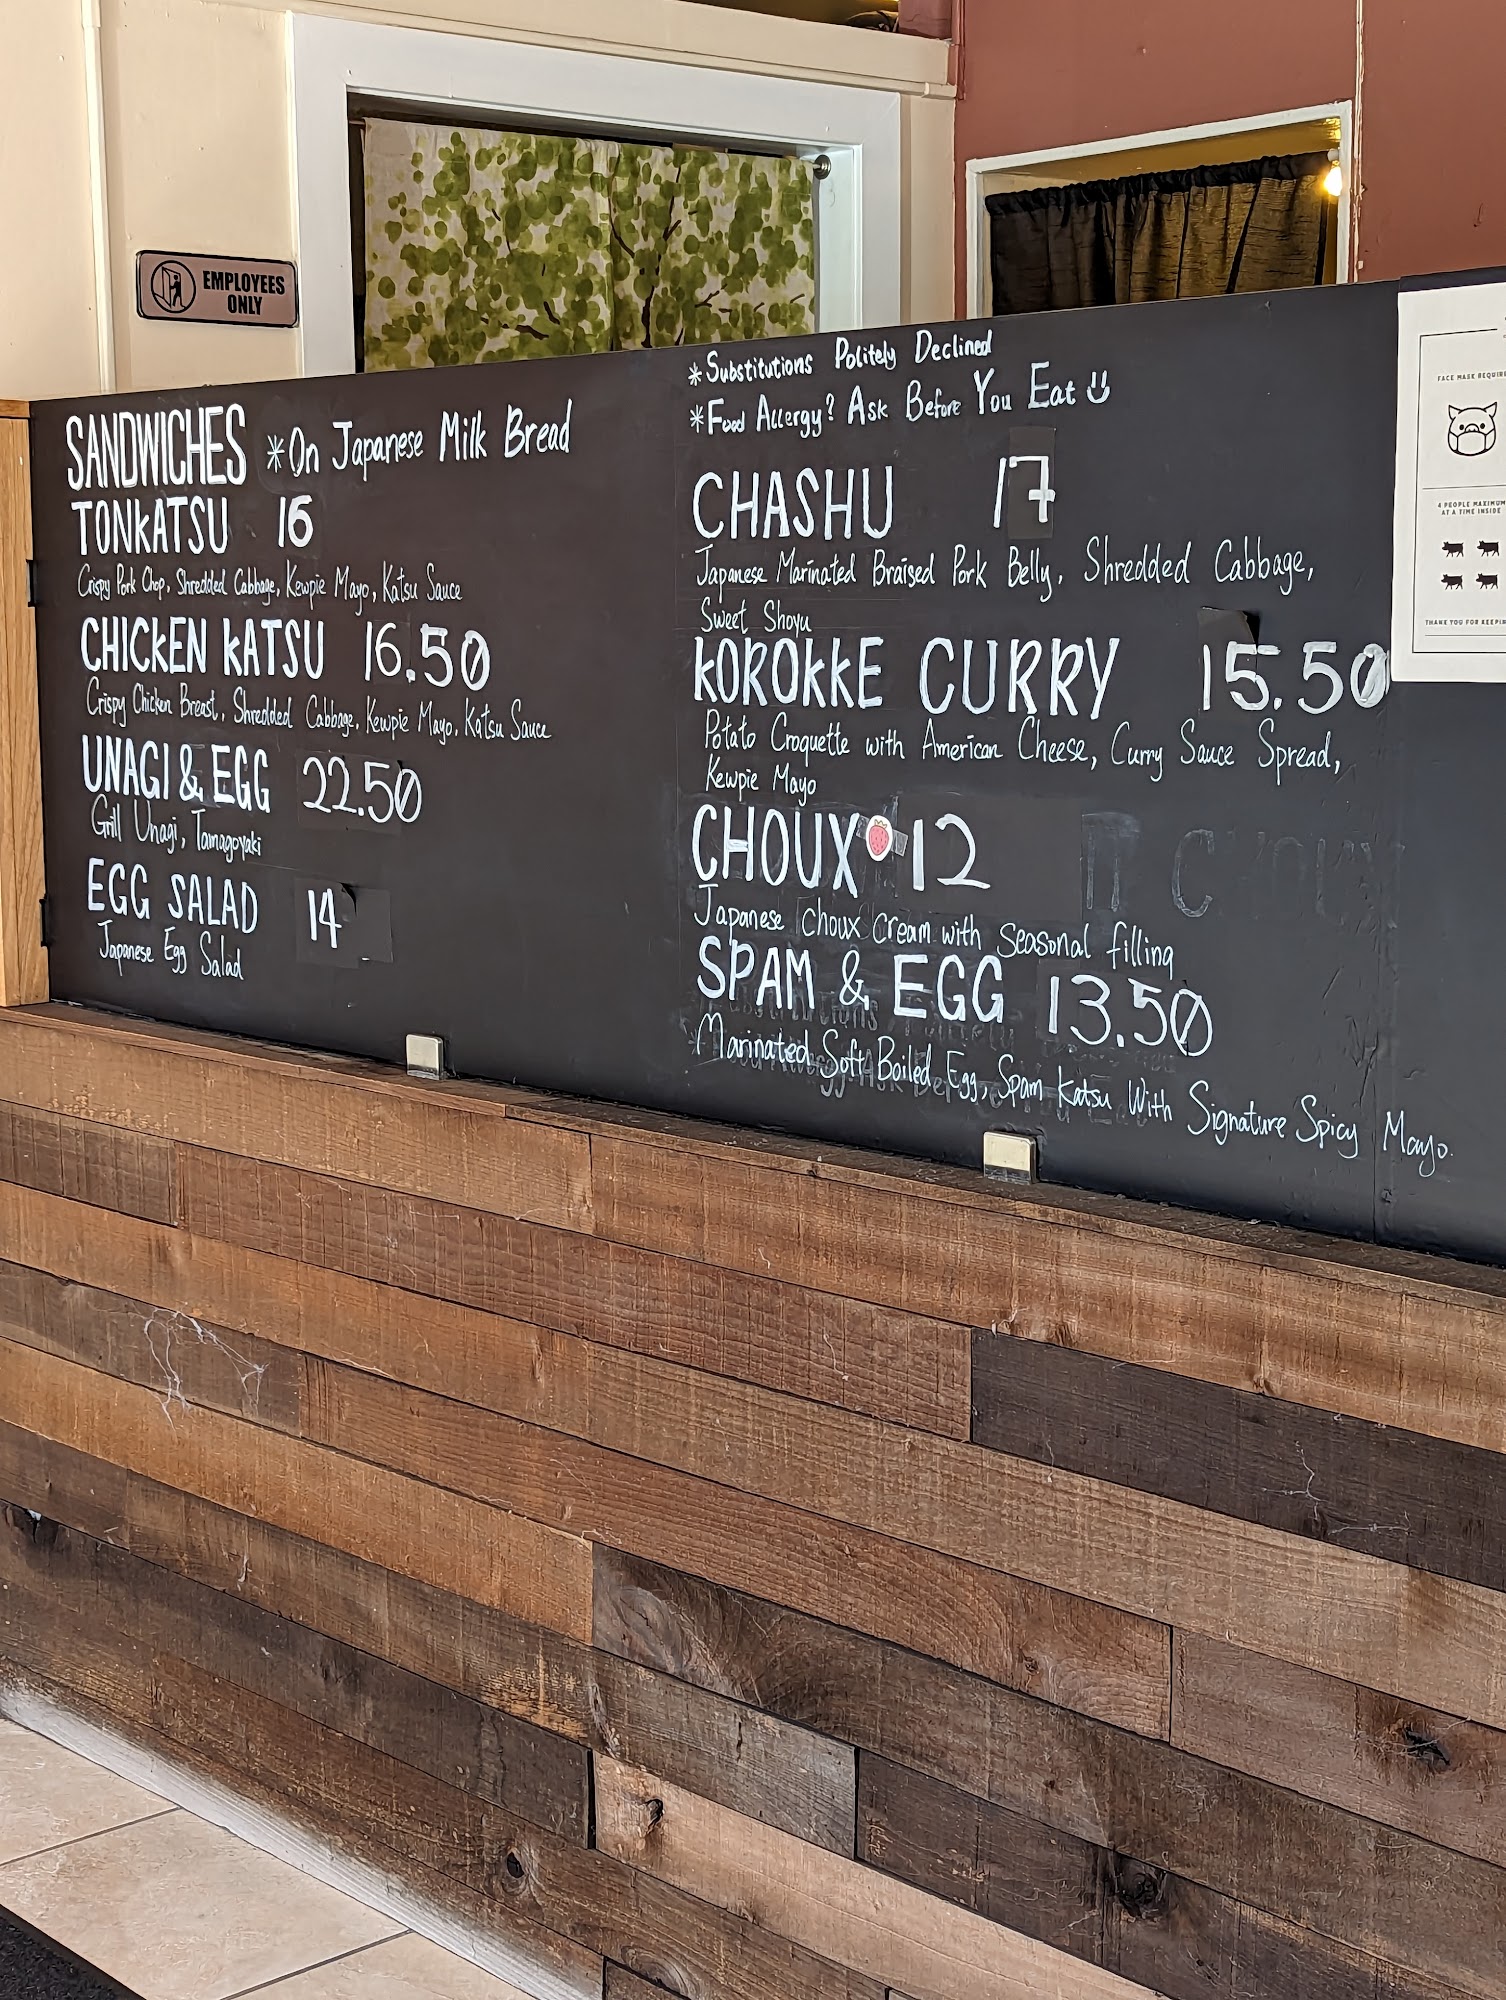 EMPLOYEES
ONLY
SANDWICHES *On Japanese Milk Bread
TONKATSU 16
Crispy Pork Chop, Shredded Cabbage, Kewpie Mayo, Katsu Sauce
CHICKEN KATSU 16.50
Crispy Chicken Breast, Shredded Cabbage, Kewpie Mayo, Katsu Sauce
UNAGI & EGG 22.50
Grill Unagi, Tamagoyaki
EGG SALAD 14
Japanese Egg Salad
*Substitutions Politely Declined
*Food Allergy? Ask Before You Eat
CHASHU 17
Japanese Marinated Braised Pork Belly, Shredded Cabbage,
Sweet Shoyu
KOROKKE CURRY 15.50
Potato Croquette with American Cheese, Curry Sauce Spread,
Kewpie Mayo
CHOUX 12
Japanese Choux Cream with Seasonal filling
SPAM & EGG 13.50
Marinated Soft Boiled Egg, Spam Katsu With Signature Spicy Mayo.
FACE MASK REQUIRE
4 PEOPLE MAXIMUM
AT A TIME INSIDE
THANK YOU FOR KEEPIN